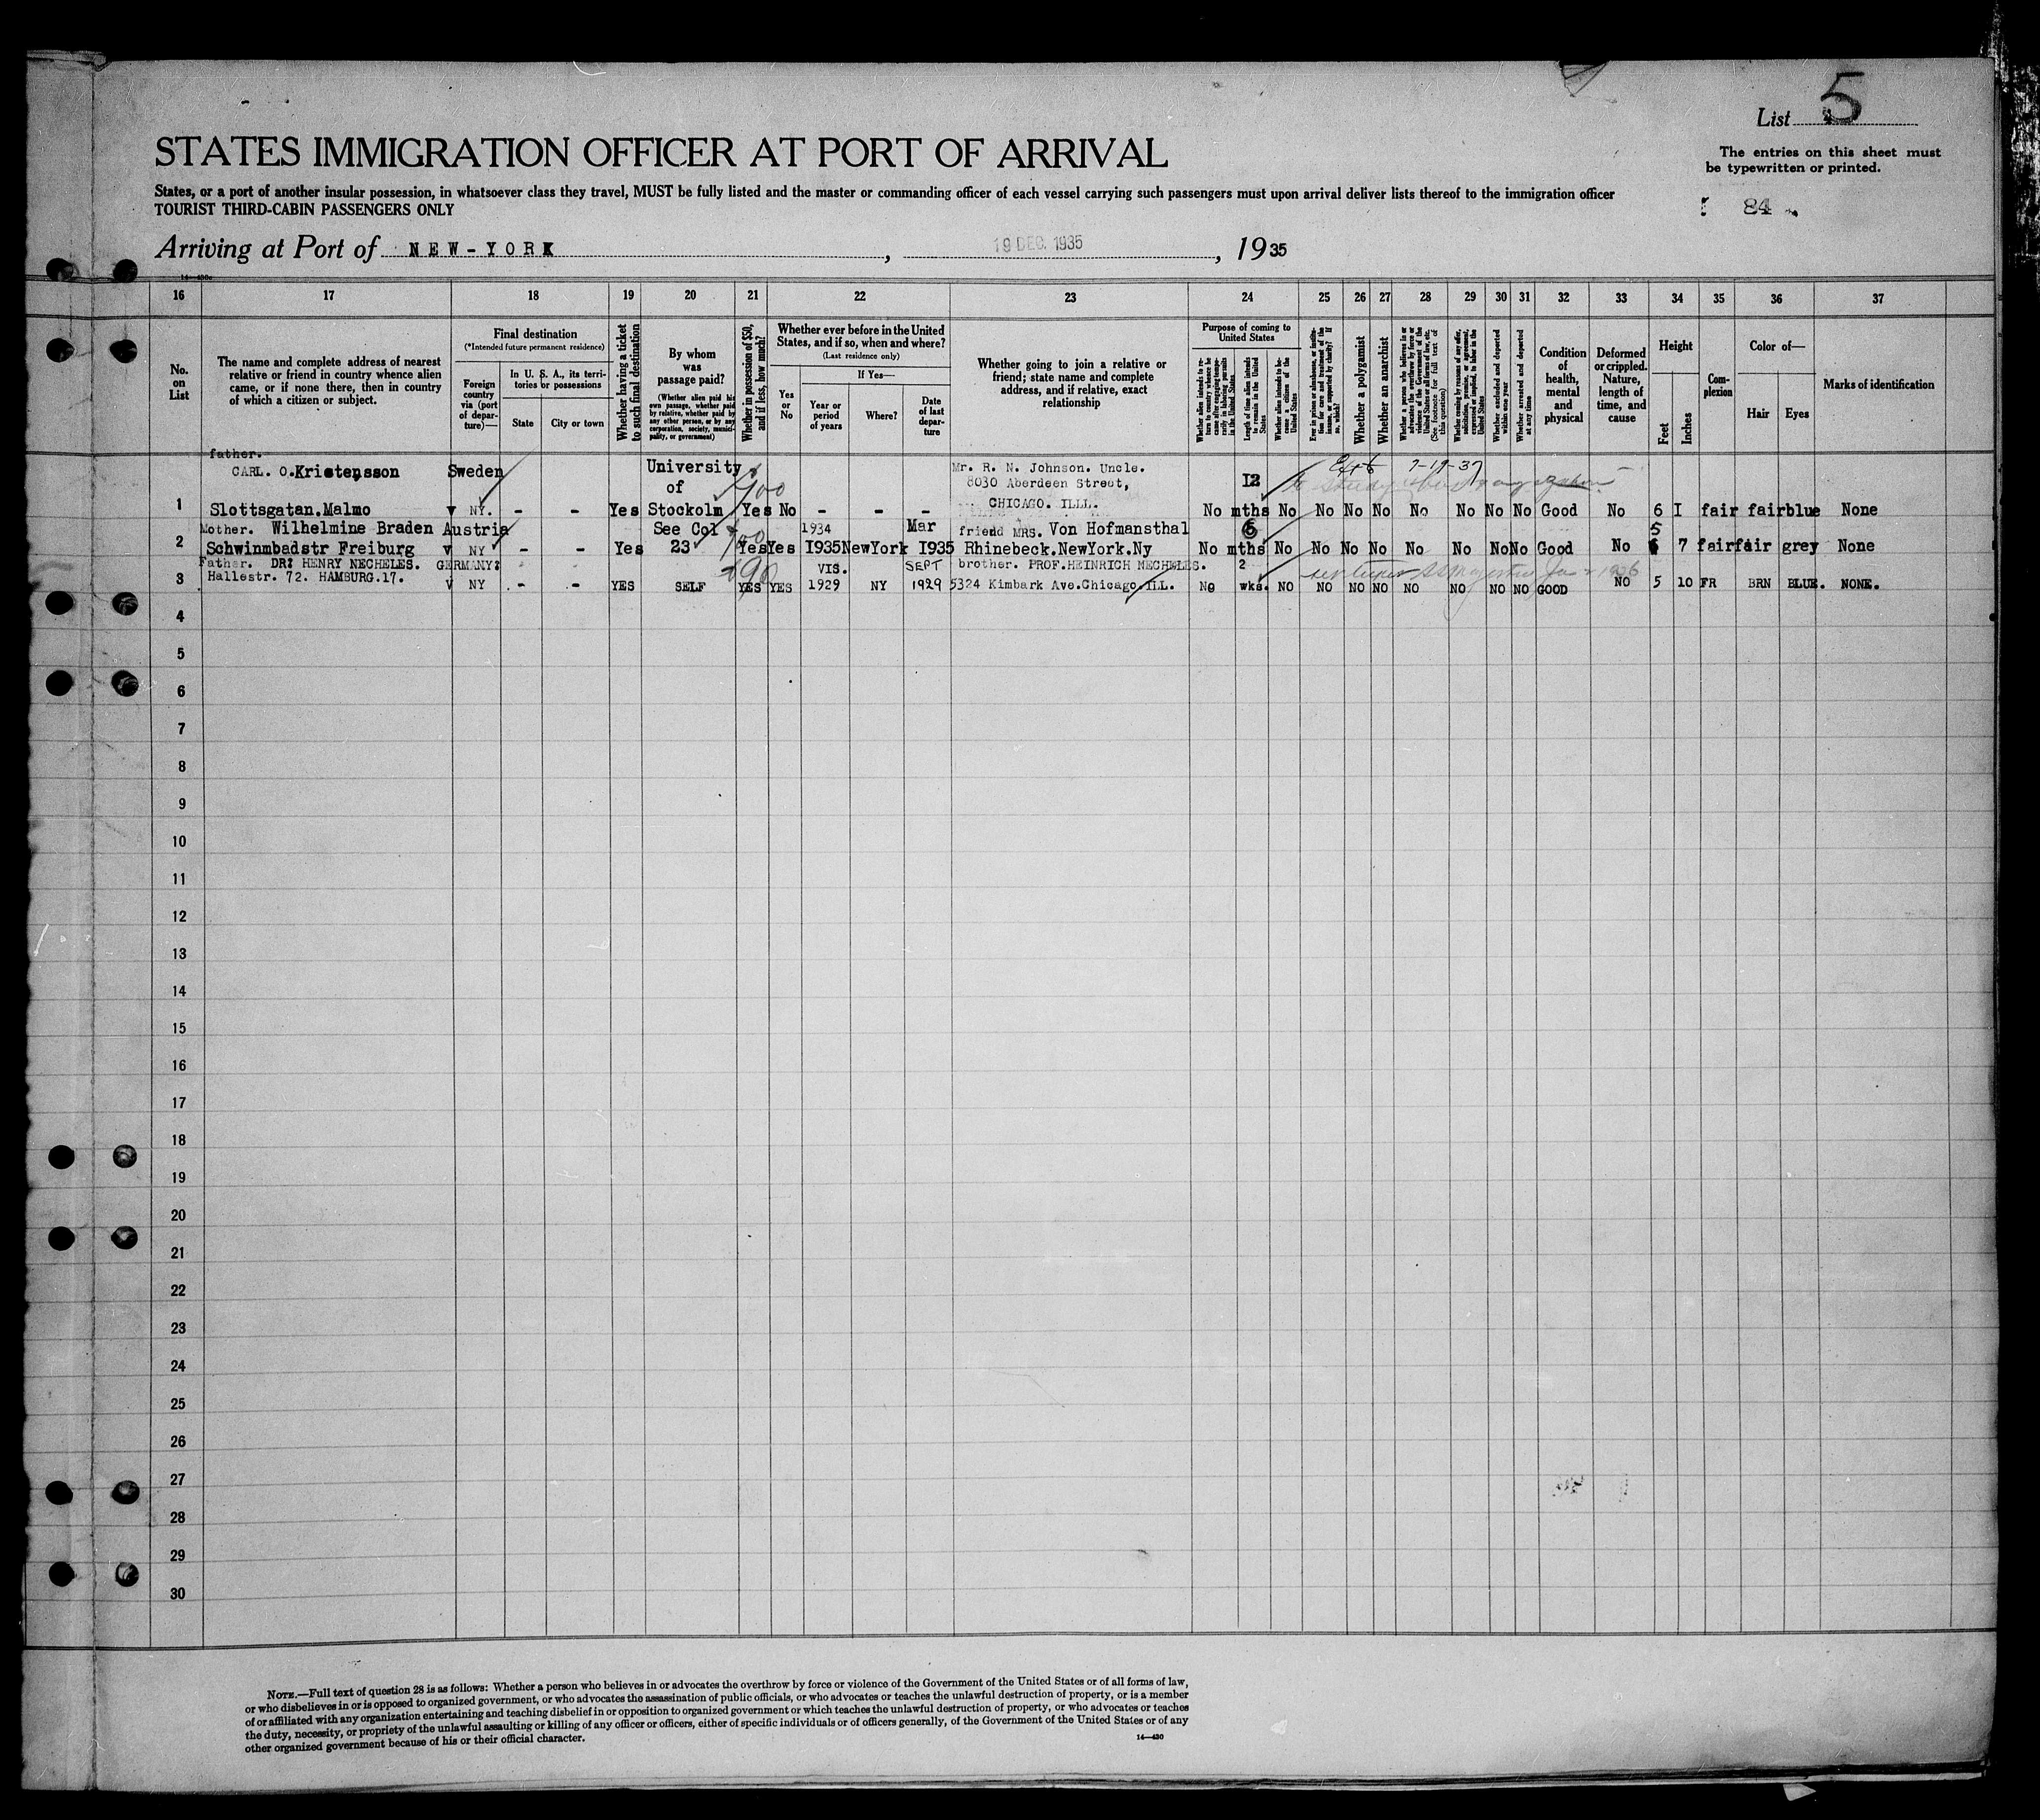 List 5
STATES IMMIGRATION OFFICER AT PORT OF ARRIVAL
The entries on this sheet must
be typewritten or printed.
States, or a port of another insular possession, in whatsoever class they travel, MUST be fully listed and the master or commanding officer of each vessel carrying such passengers must upon arrival deliver lists thereof to the immigration officer
TOURIST THIRD-CABIN PASSENGERS ONLY
84
Arriving at Port of NEW-YORK, 19 DEC. 1935, 1935
16 17 18 19 20 21 22 23 24 25 26 27 28 29 30 31 32 33 34 35 36 37
No. on List
The name and complete address of nearest
relative or friend in country whence alien
came, or if none there, then in country
of which a citizen or subject.
Final destination
(*Intended future permanent residence)
Foreign country via (port of departure)—
In U. S. A., its territories or possessions
State
City or town
Whether having a ticket to such final destination
By whom was passage paid?
(Whether alien paid his own passage, whether paid by relative, whether paid by any other person, or by any corporation, society, municipality, or government)
Whether in possession of $50, and if less, how much?
Whether ever before in the United States, and if so, when and where?
(Last residence only)
Yes or No
If Yes—
Year or period of years
Where?
Date of last departure
Whether going to join a relative or
friend; state name and complete
address, and if relative, exact
relationship
Purpose of coming to United States
Whether alien intends to return to country whence he came after engaging temporarily in laboring pursuits in the United States
Length of time alien intends to remain in the United States
Whether alien intends to become a citizen of the United States
Ever in prison or almshouse, or institution for care and treatment of the insane, or supported by charity? If so, which?
Whether a polygamist
Whether an anarchist
Whether a person who believes in or advocates the overthrow by force or violence of the Government of the United States or all forms of law, etc. (See footnote for full text of this question)
Whether coming by reason of any offer, solicitation, promise, or agreement, expressed or implied, to labor in the United States
Whether excluded and deported within one year
Whether arrested and deported at any time
Condition of health, mental and physical
Deformed or crippled. Nature, length of time, and cause
Height
Feet
Inches
Complexion
Color of—
Hair
Eyes
Marks of identification
father.
CARL. O. Kristensson Sweden University of Mr. R. N. Johnson. Uncle. 12
8030 Aberdeen Street,
CHICAGO. ILLL.
1 Slottsgatan.Malmo v NY. - - Yes Stockolm 100 Yes No - - - No mths No No No No No No No No Good No 6 I fair fair blue None
Mother. Wilhelmine Braden Austria See Col 1934 Mar friend MRS. Von Hofmansthal 6 5
2 Schwinmbadstr Freiburg v NY - - Yes 23 Yes Yes I935 NewYork I935 Rhinebeck.NewYork.Ny No mths No No No No No No No No Good No 7 fair fair grey None
Father. DR? HENRY NECHELES. GERMANY? VIS. SEPT brother. PROF.HEINRICH MECHELES. 2
3 Hallestr. 72. HAMBURG.17. V NY - - YES SELF YES YES 1929 NY 1929 5324 Kimbark Ave.Chicago.ILL. No wks. NO NO NO NO NO NO NO NO GOOD NO 5 10 FR BRN BLUE. NONE.
4
5
6
7
8
9
10
11
12
13
14
15
16
17
18
19
20
21
22
23
24
25
26
27
28
29
30
NOTE.—Full text of question 28 is as follows: Whether a person who believes in or advocates the overthrow by force or violence of the Government of the United States or of all forms of law,
or who disbelieves in or is opposed to organized government, or who advocates the assassination of public officials, or who advocates or teaches the unlawful destruction of property, or is a member
of or affiliated with any organization entertaining and teaching disbelief in or opposition to organized government or which teaches the unlawful destruction of property, or who advocates or teaches
the duty, necessity, or propriety of the unlawful assaulting or killing of any officer or officers, either of specific individuals or of officers generally, of the Government of the United States or of any
other organized government because of his or their official character.
14—430